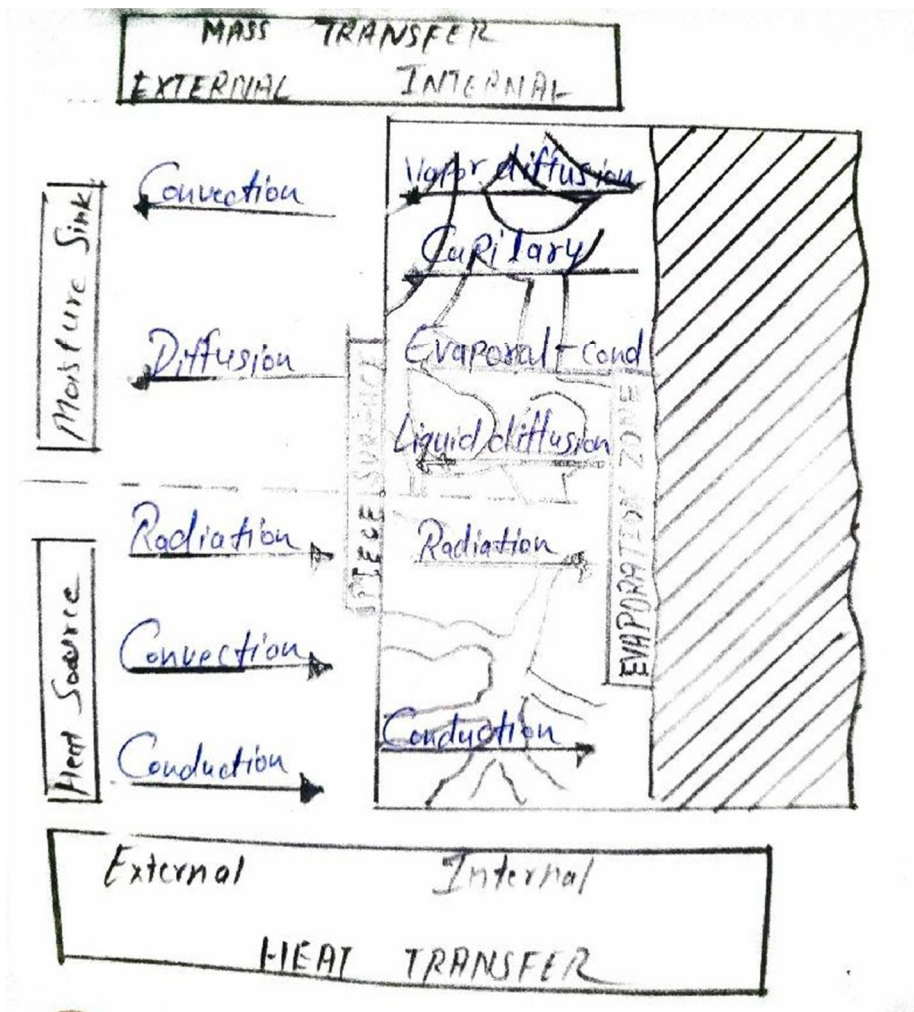 MASS TRANSFER
EXTERNAL INTERNAL
Moisture Sink
Convection
Vapor diffusion
Capilary
Diffusion
Evaporal-cond
Liquid diffusion
PIECE SURFACE
EVAPORATION ZONE
Heat Source
Radiation
Radiation
Convection
Conduction
Conduction
External Internal
HEAT TRANSFER